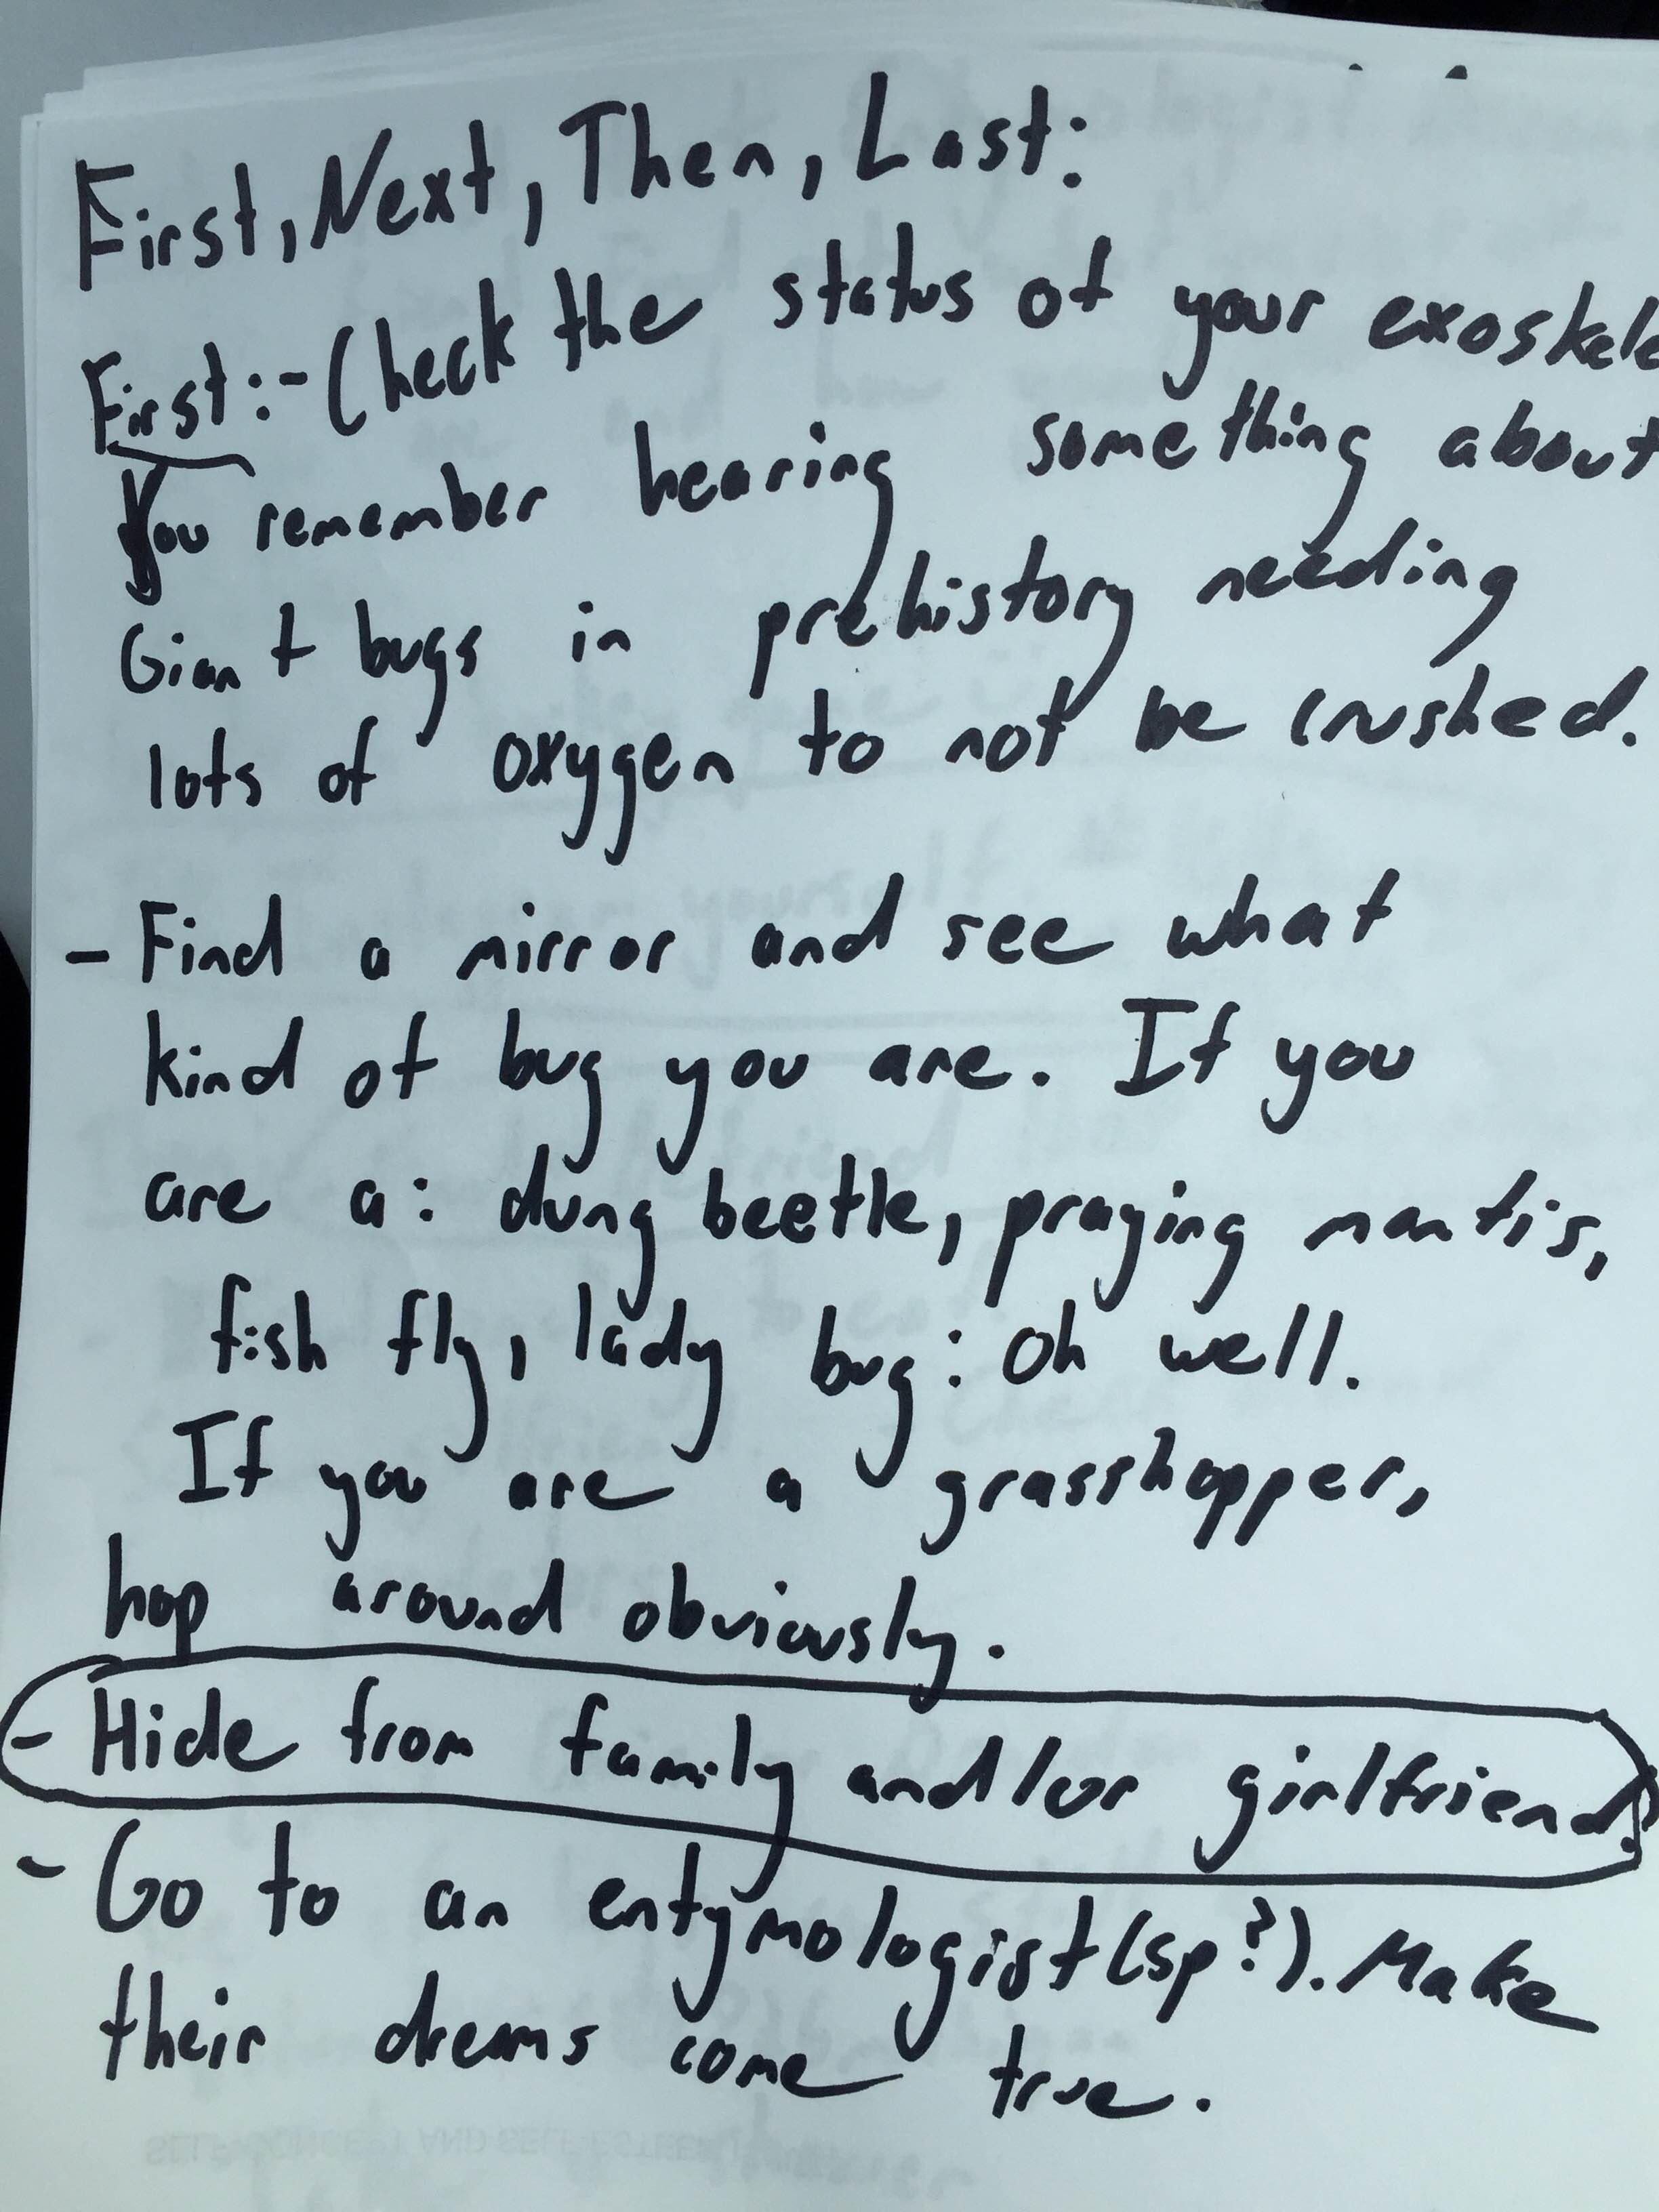 First, Next, Then, Last:
First:- Check the status of your exoskele
You remember hearing something about
Giant bugs in prehistory needing
lots of oxygen to not be crushed.
- Find a mirror and see what
kind of bug you are. If you
are a: dung beetle, praying mantis,
fish fly, lady bug: oh well.
If you are a grasshopper,
hop around obviously.
- Hide from family and/or girlfriend.
- Go to an entymologist (sp?). Make
their dreams come true.